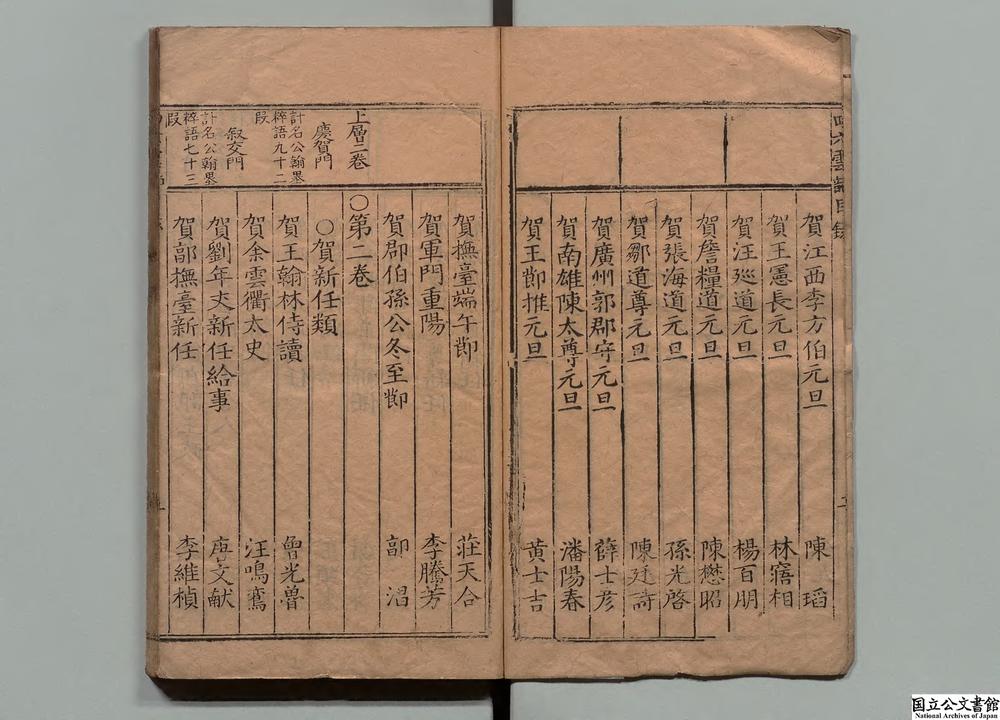 賀江西李方伯元旦 陳瑫
賀王憲長元旦 林寤相
賀汪廵道元旦 楊百朋
賀詹糧道元旦 陳懋昭
賀張海道元旦 孫光啓
賀鄒道尊元旦 陳廷詩
賀廣州郭郡守元旦 薛士彥
賀南雄陳太尊元旦 潘陽春
賀王節推元旦 黄士吉
賀撫臺端午節 莊天合
賀軍門重陽 李騰芳
賀郡伯孫公冬至節 郭
上層二卷
○第二卷
慶賀門
○賀新任類
計名公翰墨
粹語九十二
段
賀王翰林侍讀 曾光魯
叙交門
賀余雲衢太史 汪鳴鸞
計名公翰墨
粹語七十三
段
賀劉年丈新任給事 唐文献
賀郭撫臺新任 李維楨
国立公文書館
National Archives of Japan